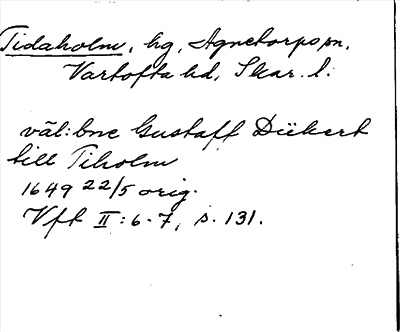 Tidaholm, hg, Agnetorps sn,
Vartofta hd, Skar. l.
väl:bne Gustaff Dükert
till Tiholm
1649 22/5 orig.
Vft II:6-7, s. 131.